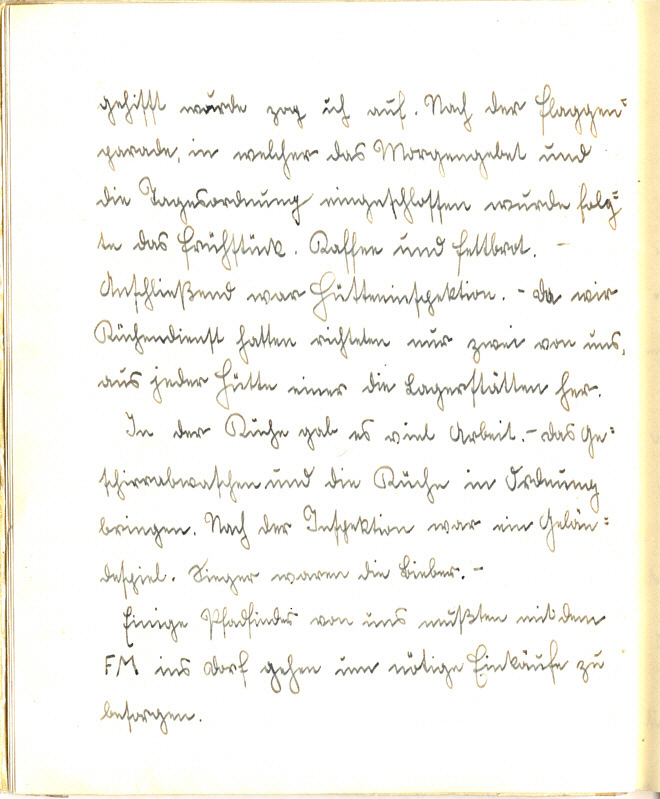 gehißt wurde zog ich auf. Nach der Flaggen=
parade, in welcher das Morgengebet und
die Tagesordnung eingeschlossen wurde folg=
te das Frühstück. Kaffee und Fettbrot. –
Anschließend war Hütteninspektion. – Da wir
Küchendienst hatten richteten nur zwei von uns,
aus jeder Hütte einer die Lagerstätten her.
In der Küche gab es viel Arbeit. – Das Ge=
schirrabwaschen und die Küche in Ordnung
bringen. Nach der Inspektion war ein Gelän=
despiel. Sieger waren die Bieber. –
Einige Pfadfinder von uns mußten mit dem
FM ins Dorf gehen um nötige Einkäufe zu
besorgen.